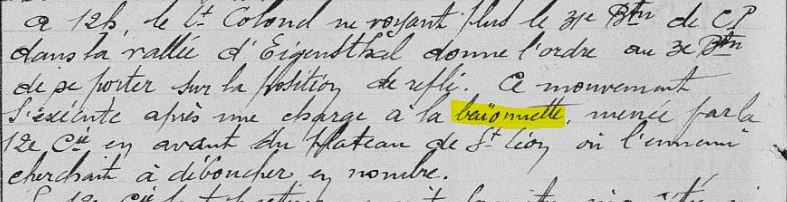 a 12h, le Lt Colonel ne voyant plus le 31e Btn de CP
dans la vallée d'Eigensthal donne l'ordre au 3e Btn
de se porter sur la position de repli. Ce mouvement
s'exécute après une charge à la baïonnette, menée par la
12e Cie en avant du plateau de St Léon où l'ennemi
cherchait à déboucher en nombre.